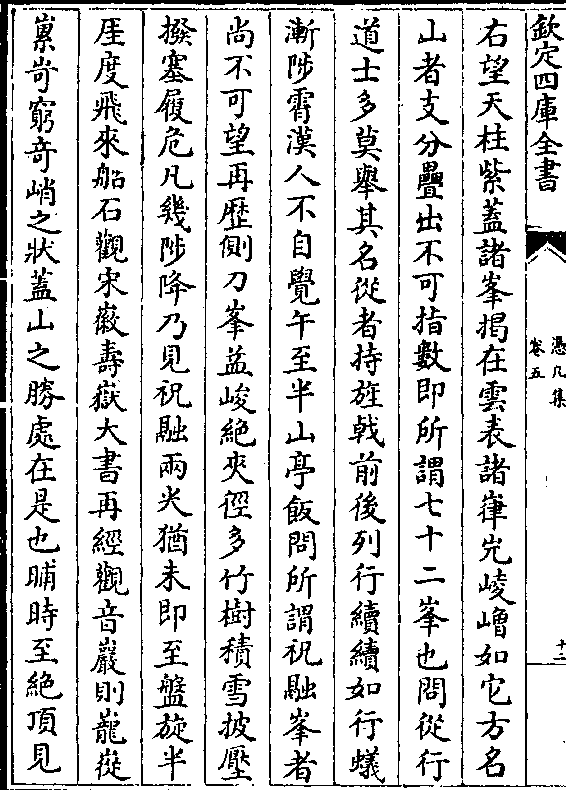 欽定四庫全書
憑几集
卷五
十二
右望天柱紫蓋諸峯揭在雲表諸嵂屼崚嶒如它方名
山者支分疊出不可指數即所謂七十二峯也問從行
道士多莫舉其名從者持旌戟前後列行續續如行蟻
漸陟霄漢人不自覺午至半山亭飯問所謂祝融峯者
尚不可望再歴側刀峯益峻絶夾徑多竹樹積雪披壓
撥塞履危凡幾陟降乃見祝融兩尖猶未即至盤旋半
厓度飛來船石觀宋徽壽嶽大書再經觀音巖則巃嵸
窮奇峭之狀蓋山之勝處在是也晡時至絶頂見